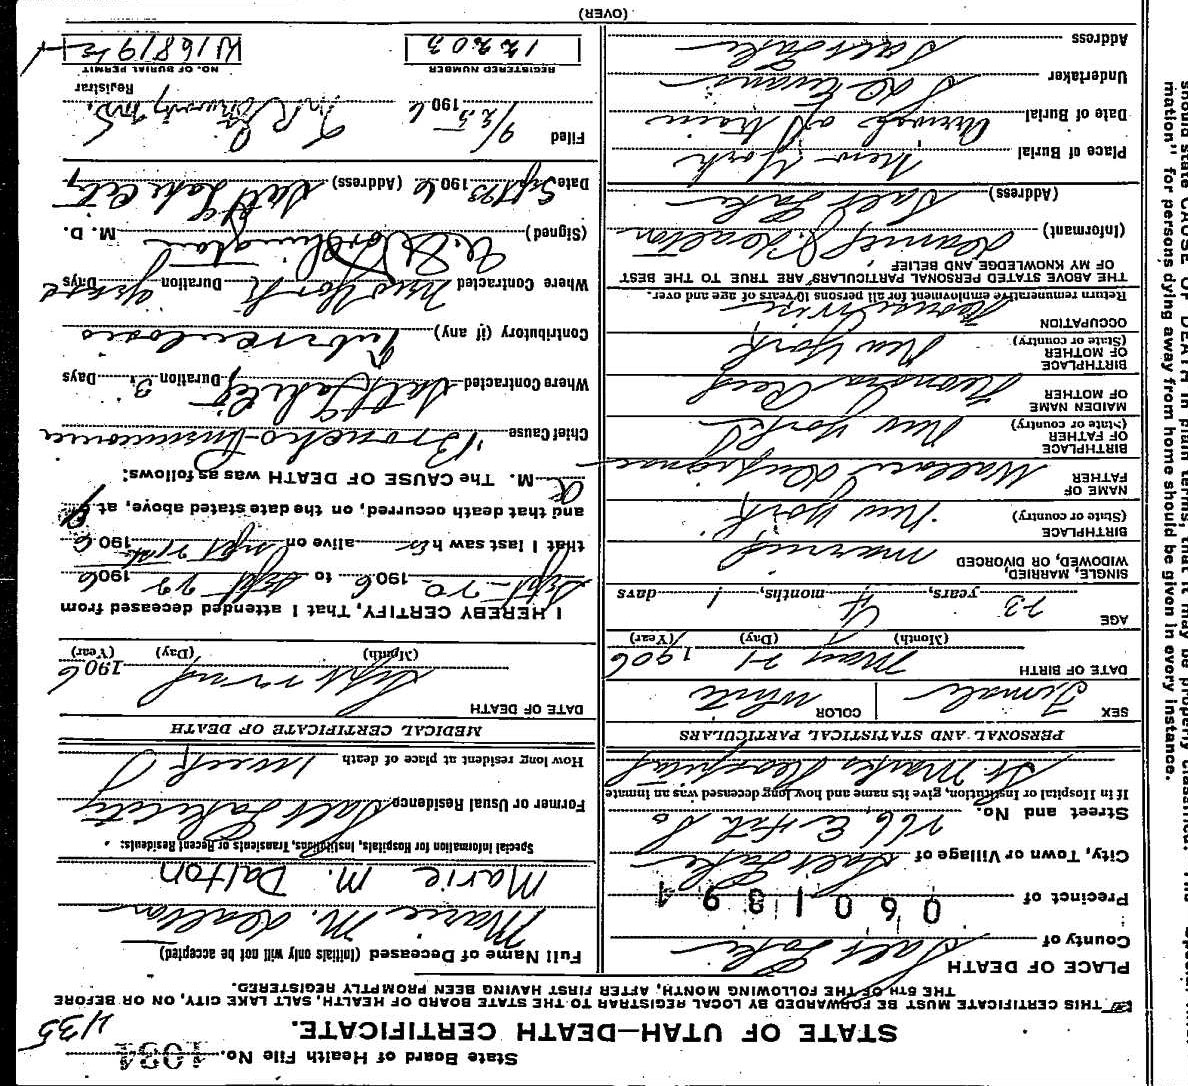 State Board of Health File No. 1034
435
STATE OF UTAH—DEATH CERTIFICATE.
THIS CERTIFICATE MUST BE FORWARDED BY LOCAL REGISTRAR TO THE STATE BOARD OF HEALTH, SALT LAKE CITY, ON OR BEFORE
THE 5TH OF THE FOLLOWING MONTH, AFTER FIRST HAVING BEEN PROMPTLY REGISTERED.
PLACE OF DEATH
County of Salt Lake
Precinct of 0601894
City, Town or Village of Salt Lake
Street and No. 766 E 4th So
If in Hospital or Institution, give its name and how long deceased was an inmate
St. Marks Hospital
PERSONAL AND STATISTICAL PARTICULARS
SEX Female COLOR White
DATE OF BIRTH May 21 1906
(Month) (Day) (Year)
AGE 23 years, 4 months, 1 days
SINGLE, MARRIED,
WIDOWED, OR DIVORCED married
BIRTHPLACE
(State or country) New York
NAME OF
FATHER Wallace
BIRTHPLACE
OF FATHER
(State or country) New York
MAIDEN NAME
OF MOTHER Leonora
BIRTHPLACE
OF MOTHER
(State or country) New York
OCCUPATION Housewife
Return remunerative employment for all persons 10 years of age and over.
THE ABOVE STATED PERSONAL PARTICULARS ARE TRUE TO THE BEST
OF MY KNOWLEDGE AND BELIEF
(Informant) Dalton
(Address) Salt Lake
Place of Burial New York
Date of Burial
Undertaker Evans
Address Salt Lake
(OVER)
Full Name of Deceased (Initials only will not be accepted)
Marie M. Dalton
Marie M. Dalton
Special Information for Hospitals, Institutions, Transients or Recent Residents:
Former or Usual Residence Salt Lake City
How long resident at place of death
MEDICAL CERTIFICATE OF DEATH
DATE OF DEATH
Sept 22nd 1906
(Month) (Day) (Year)
I HEREBY CERTIFY, That I attended deceased from
Sept 20 1906 to Sept 22 1906
that I last saw her alive on Sept 21st 1906
and that death occurred, on the date stated above, at
a M. The CAUSE OF DEATH was as follows:
Chief Cause Broncho-Pneumonia
Where Contracted Salt Lake City Duration 3 Days
Contributory (if any) Tuberculosis
Where Contracted New York Duration Days
(Signed) Worthington M. D.
Date Sept 23 1906 (Address) Salt Lake City
Filed 9/25 1906
Registrar
REGISTERED NUMBER
12203
NO. OF BURIAL PERMIT
W16819½
should state CAUSE OF DEATH in plain terms, that it may be properly classified. The
mation" for persons dying away from home should be given in every instance.